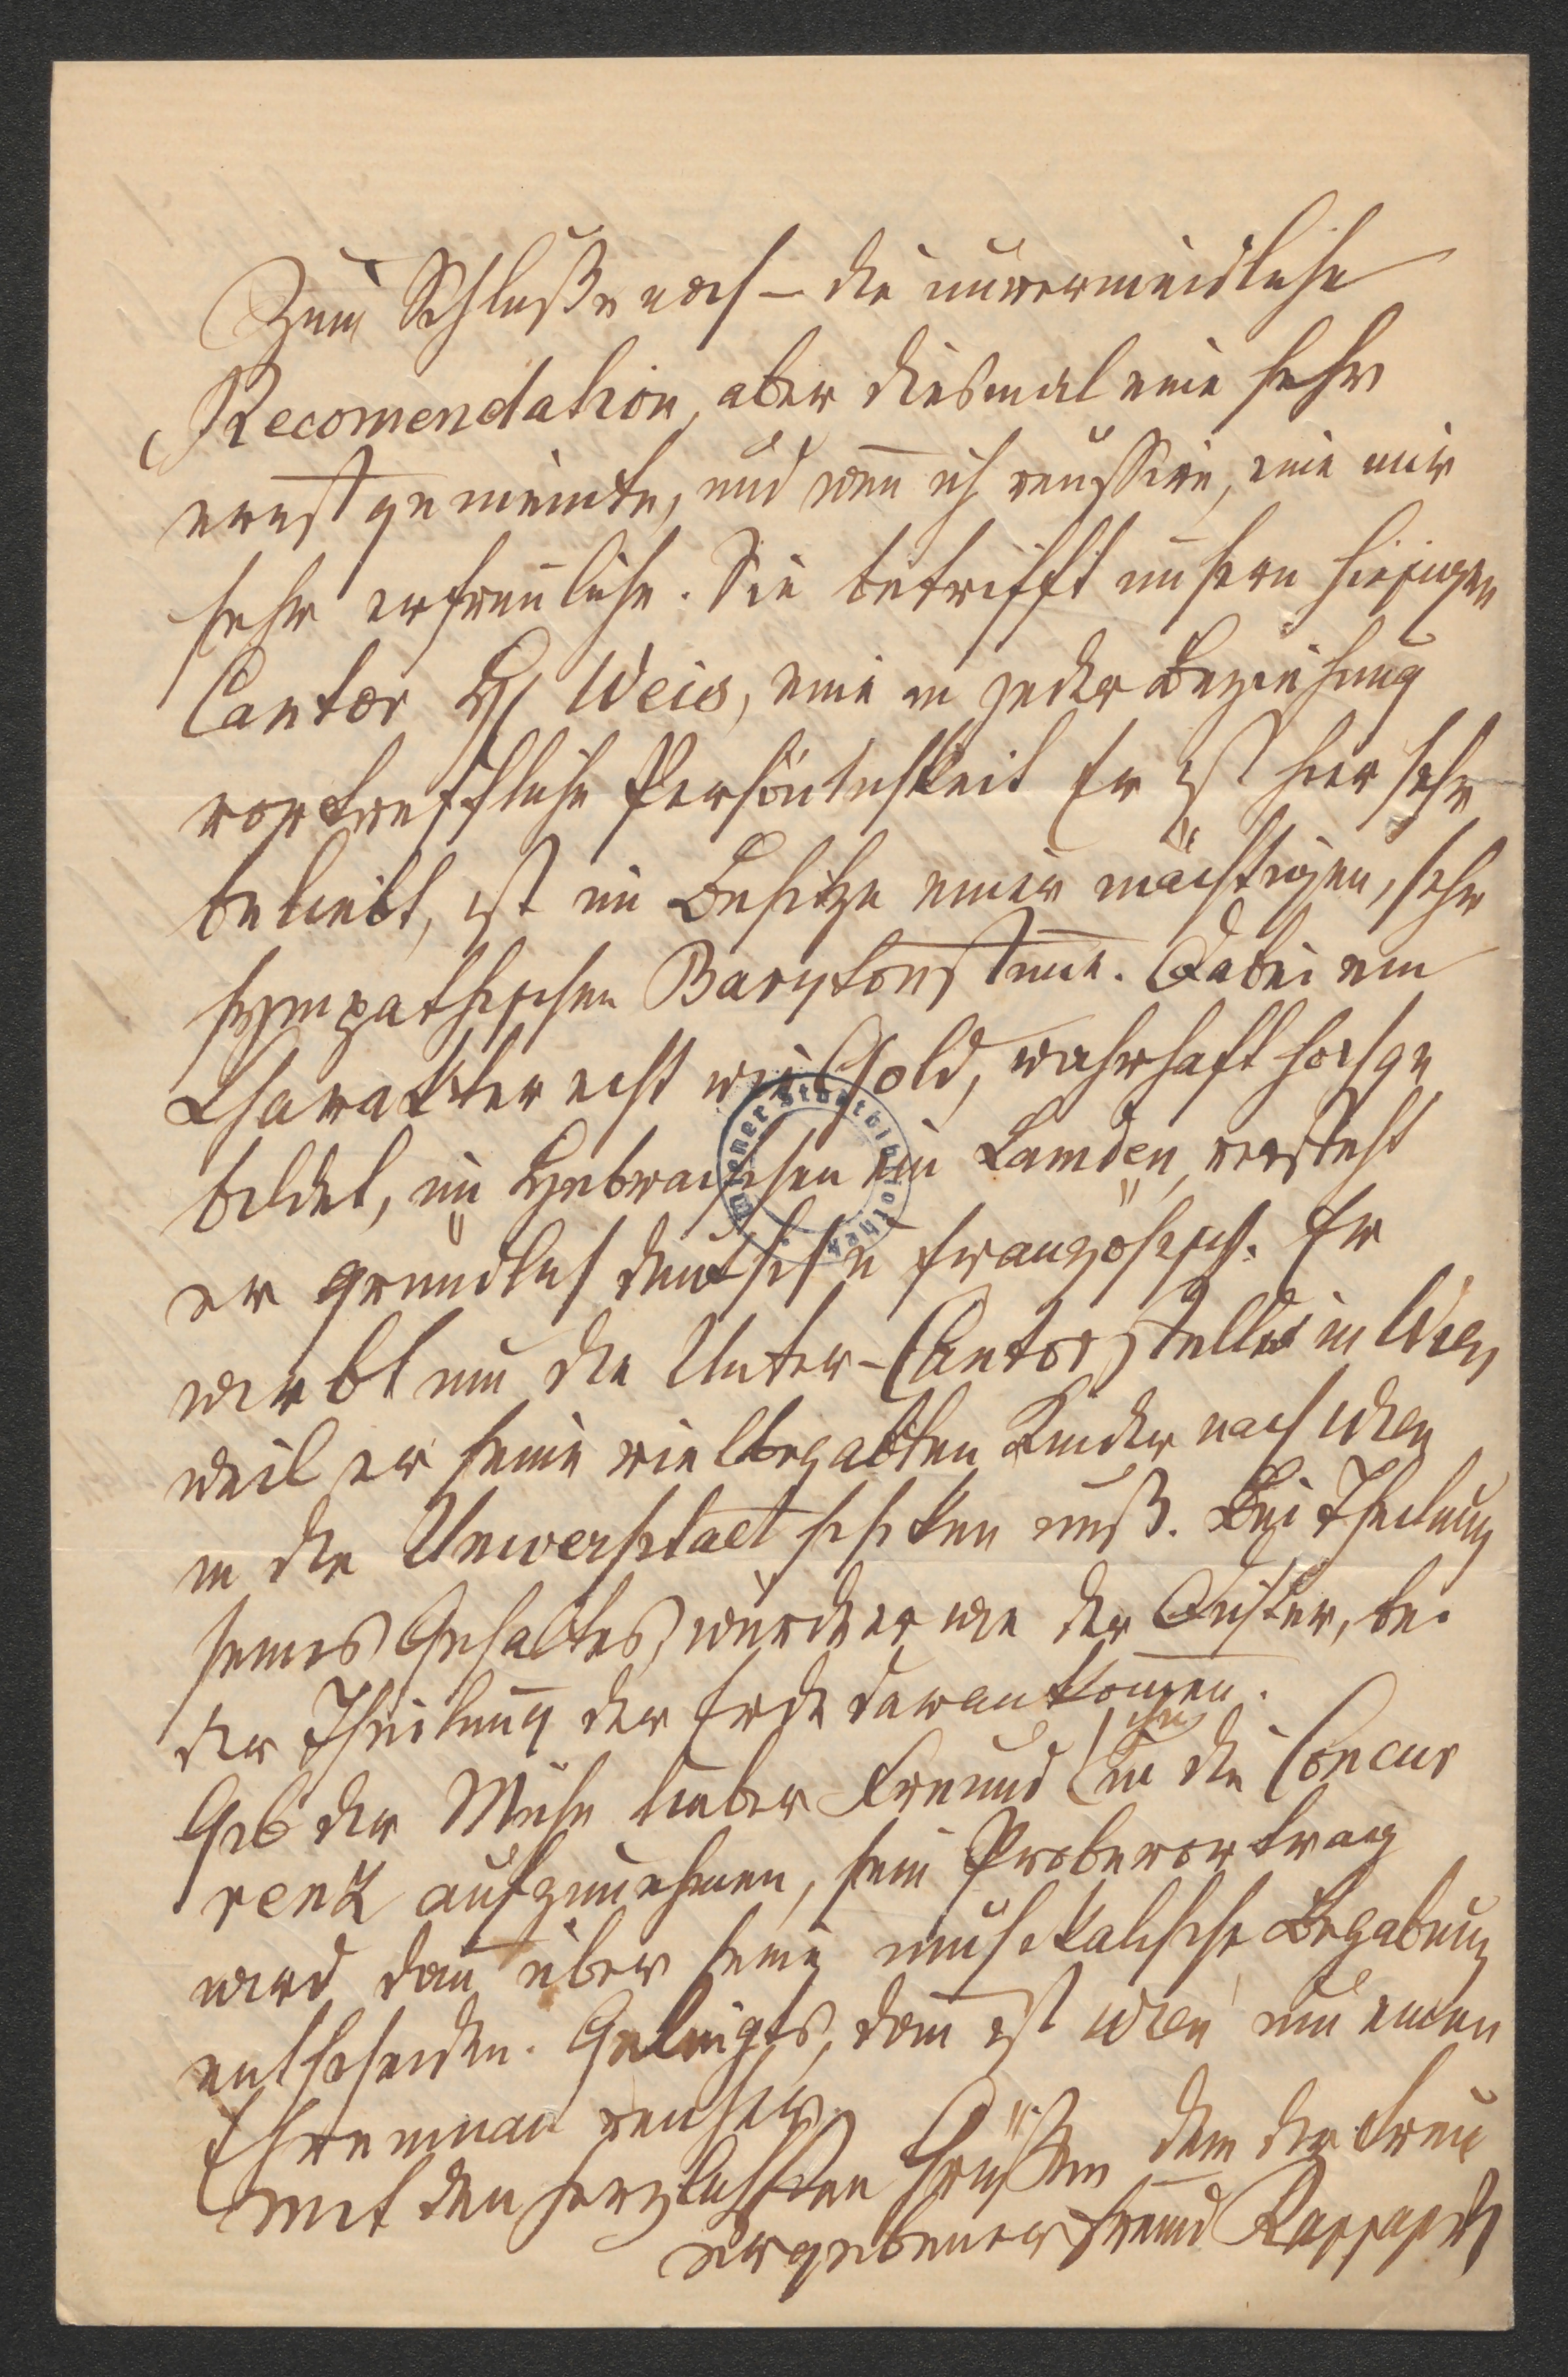 Zum Schluße noch – die unvermeidliche
Recomendation, aber diesmal eine sehr
ernst gemeinte, und wenn ich reussire, eine mir
sehr erfreuliche. Sie betrifft unsern hiesigen
Cantor H Weis, eine in jeder Beziehung
vortreffliche Persönlichkeit Er ist hier sehr
beliebt, ist im Besitze einer mächtigen, sehr
sympathischen Barytonstimme. Dabei ein
Charakter echt wie Gold, wahrhaft hochge
bildet, im Hebraischen ein Lamden, versteht
er gründlich deutsch u französisch. Er
wirbt um die Unter-Cantorstelle in Wien
weil er seine vielbegabten Kinder nach Wien
in die Universitaet schicken muß. Bei Theilung
seines Gehaltes, würde er wie der Dichter, bei
der Theilung der Erde darankommen.
Gib dir Mühe lieber Freund ihn in die Concur
renz aufzunehmen, sein Probevortrag
wird dann über seine musikalische Begabung
entscheiden. Gelingts, dann ist Wien um einen
Ehrenmann reicher.
Mit den herzlichsten Grüßen dein dir treu
ergebener Freund Rappaport
Wiener Stadtbibliothek